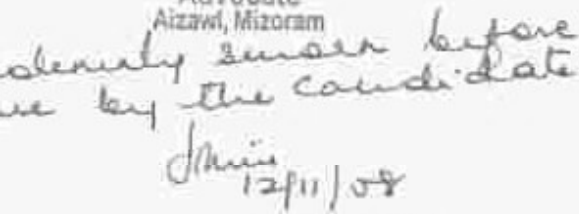 Advocate
Aizawl, Mizoram
solemnly sworn before
me by the candidate
12/11/08